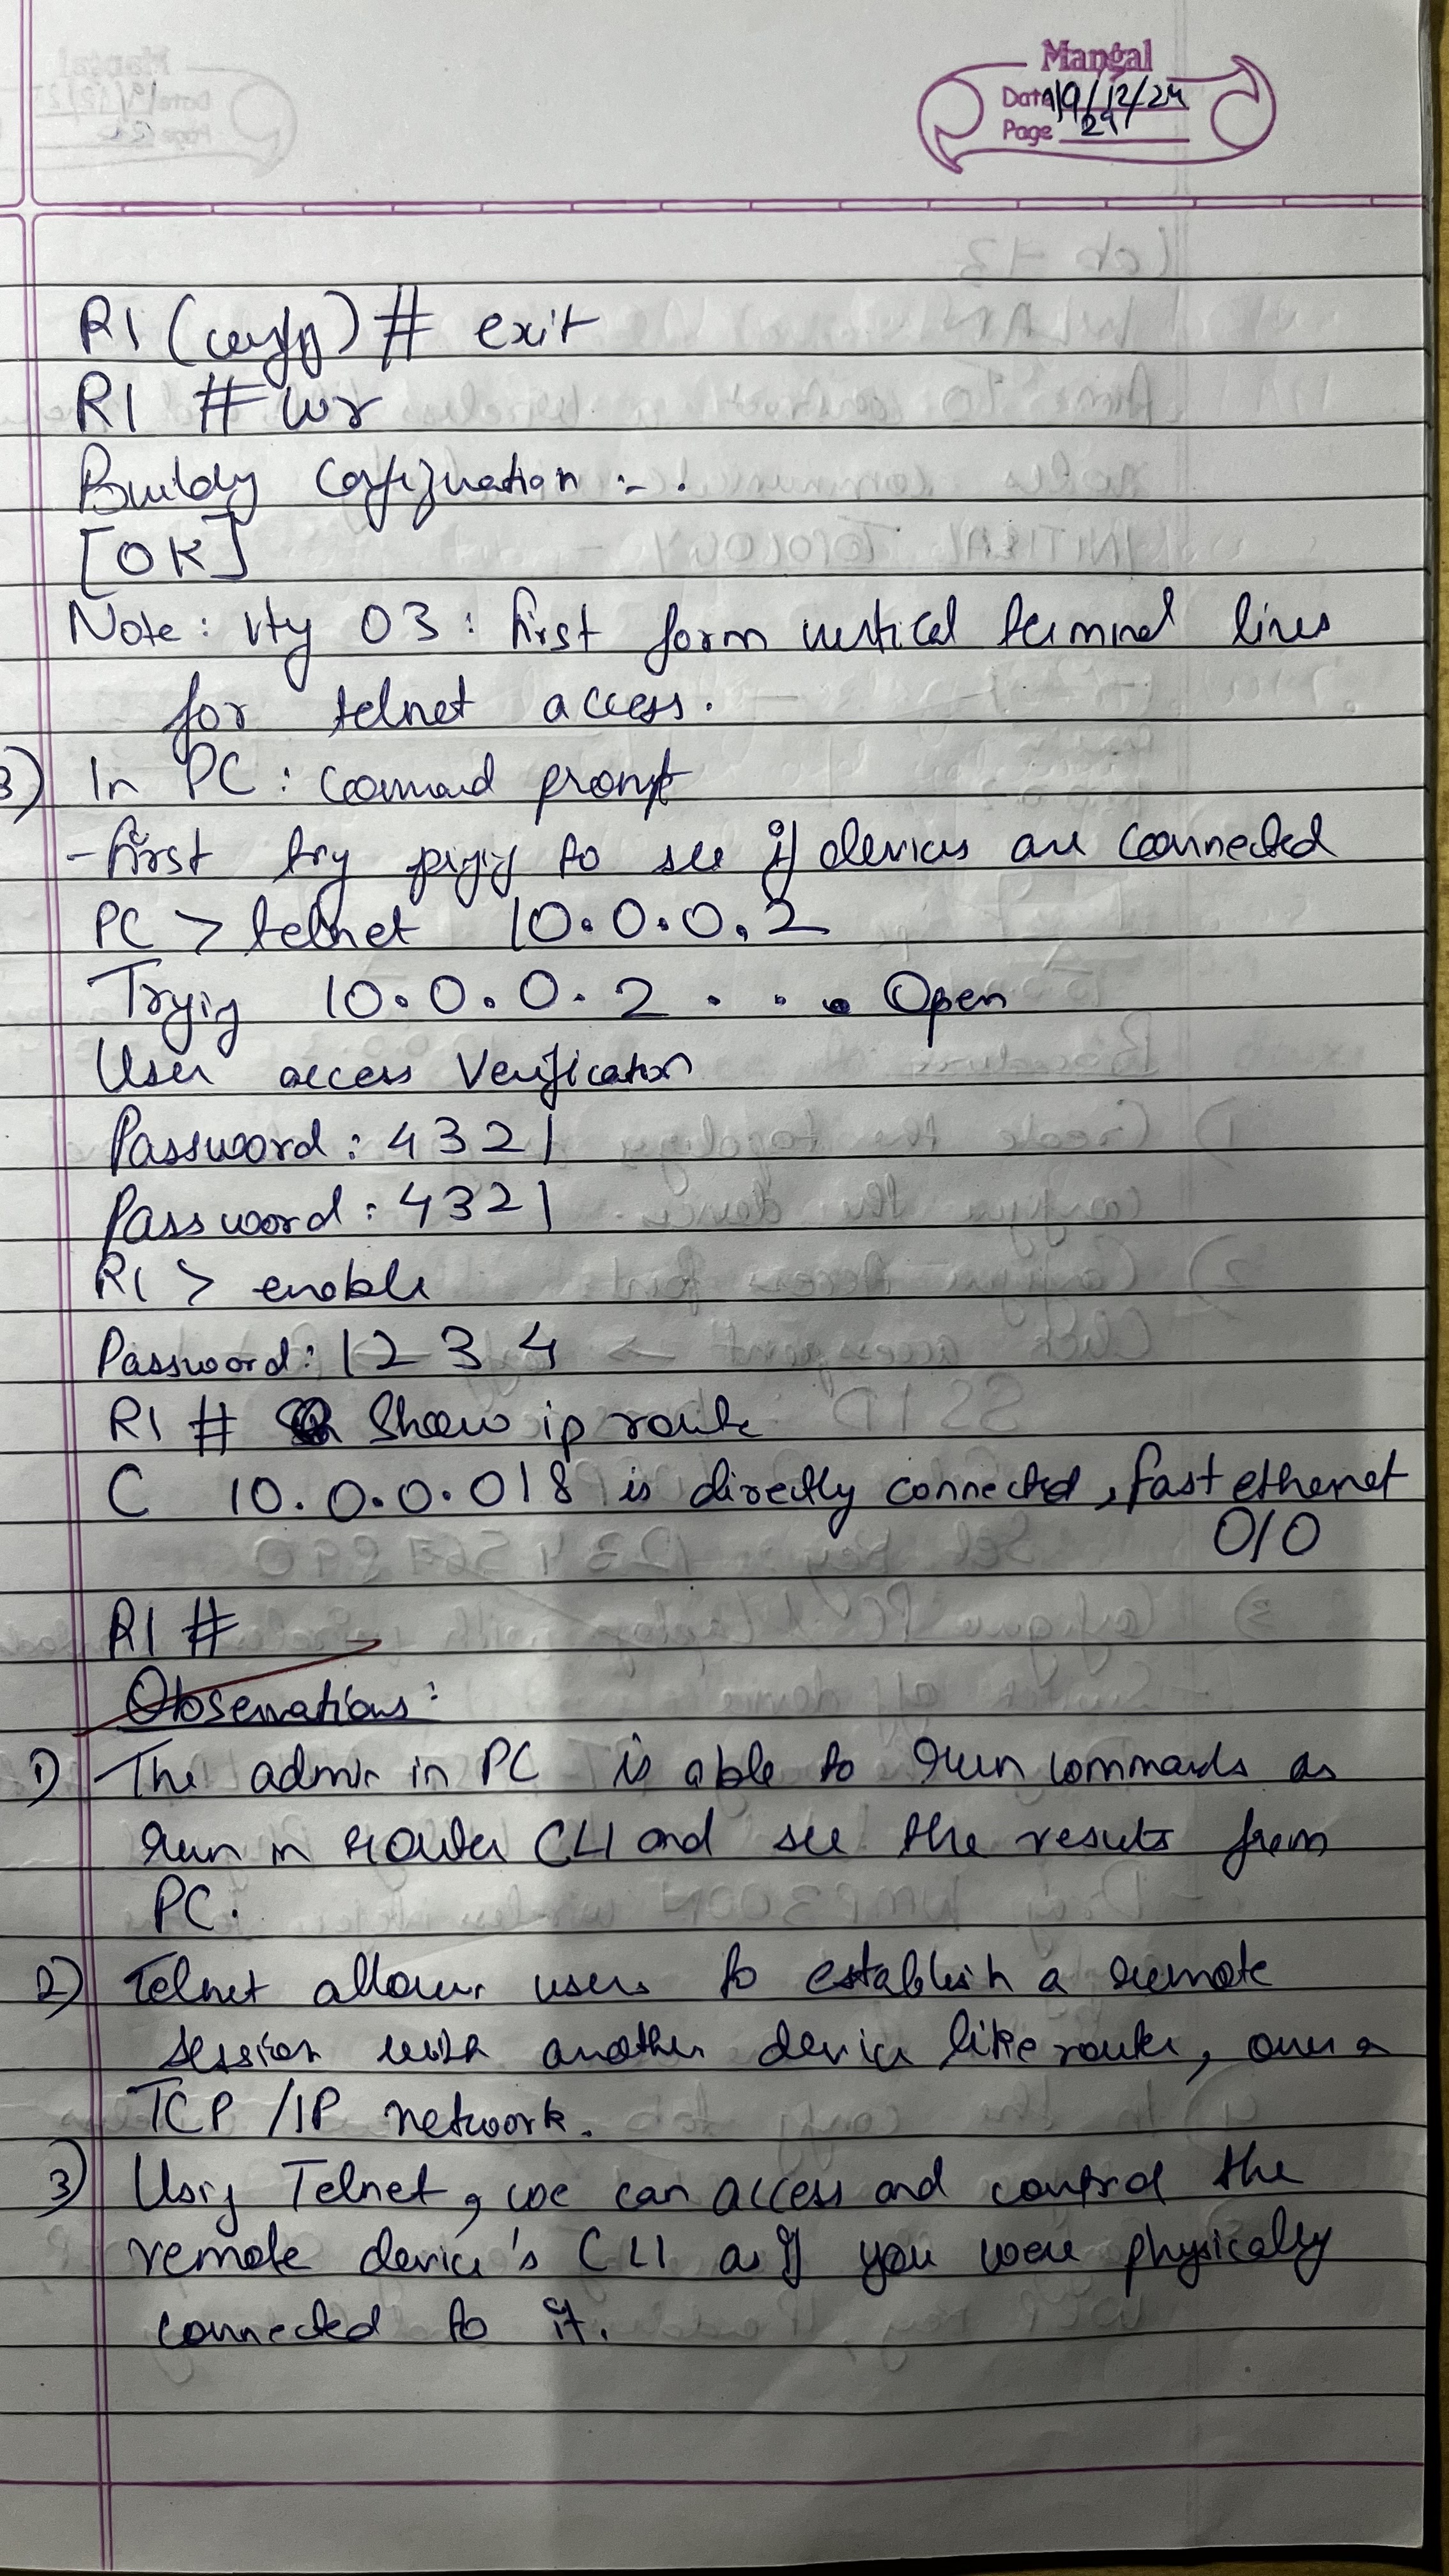 Mangal
Date 19/12/24
Page 29
R1 (config) # exit
R1 # wr
Building configuration :- .
[OK]
Note: vty 0 3 : first form vertical terminal lines
for telnet access.
3) In PC : Command prompt
- first try pinging to see if devices are connected
PC > telnet 10.0.0.2
Trying 10.0.0.2 . . . Open
User access Verification
Password : 4321
Password : 4321
R1 > enable
Password : 1234
R1 # Show ip route
C 10.0.0.0/8 is directly connected, fast ethernet
0/0
R1 #
Observations :
1) The admin in PC is able to run commands as
run in router CLI and see the results from
PC.
2) Telnet allows users to establish a remote
session with another device like router, over a
TCP/IP network.
3) Using Telnet, we can access and control the
remote device's CLI as if you were physically
connected to it.